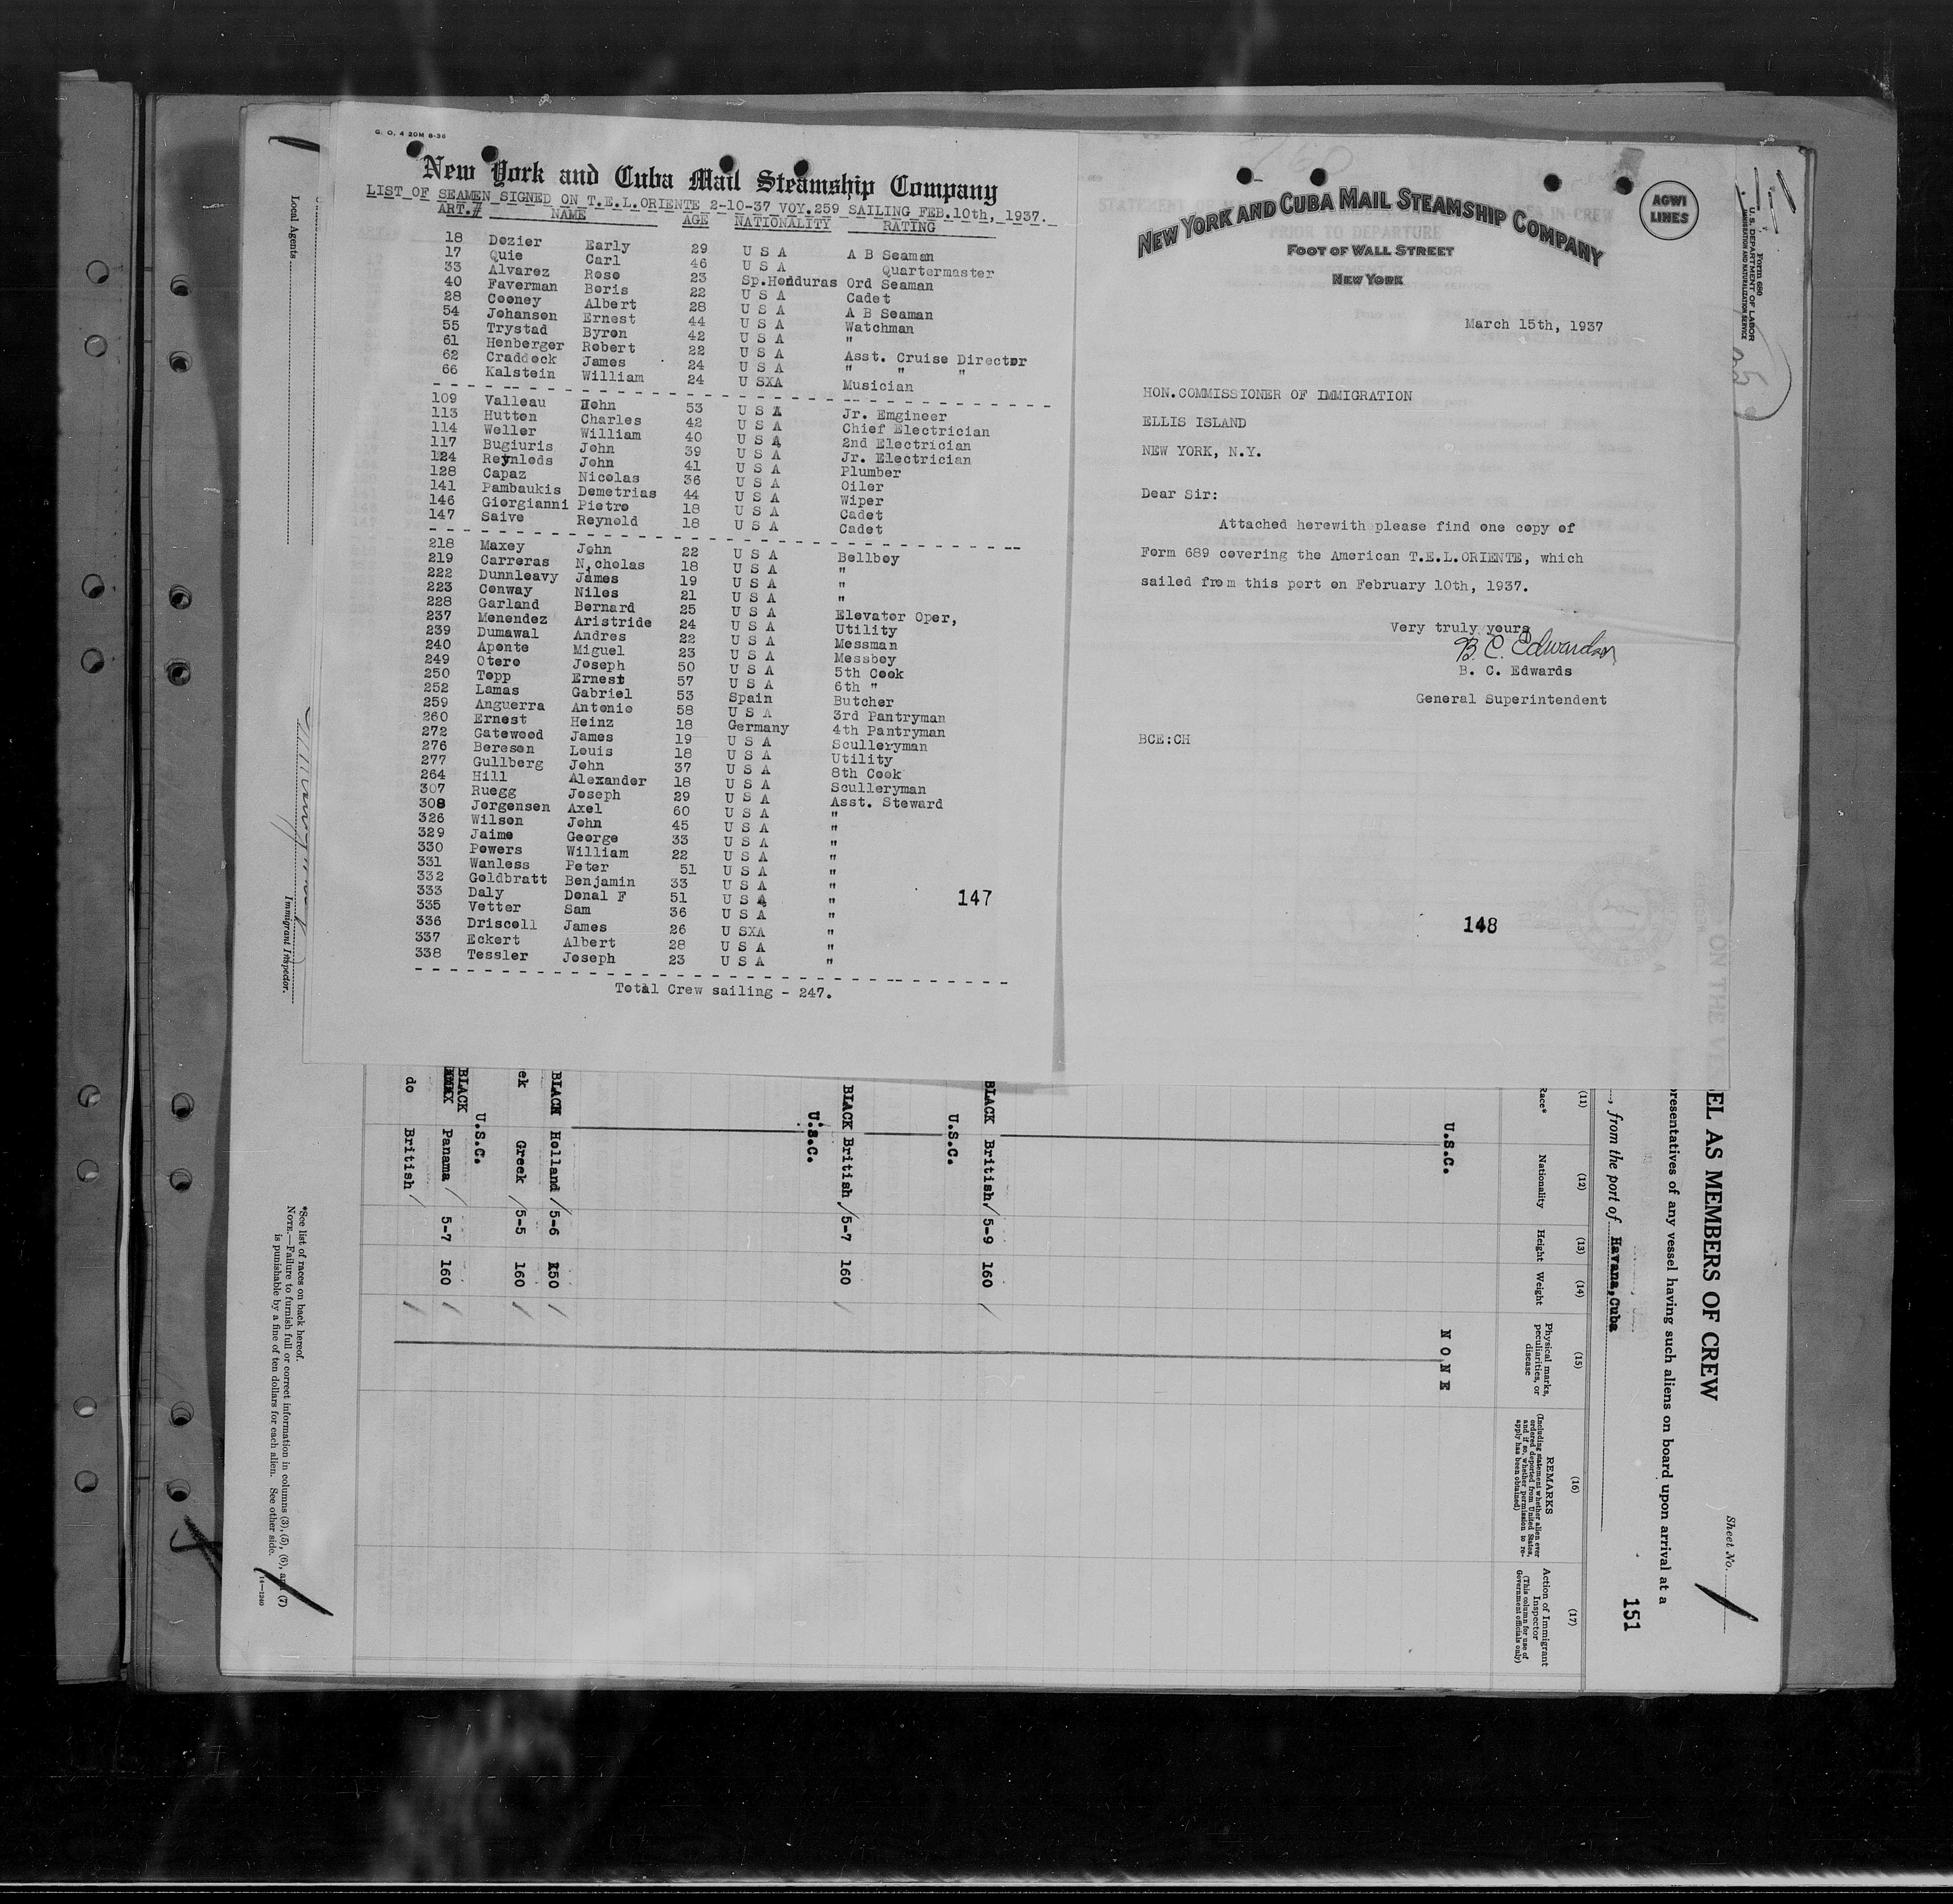 G. O. 4 20M 8-36
New York and Cuba Mail Steamship Company
LIST OF SEAMEN SIGNED ON T.E.L.ORIENTE 2-10-37 VOY.259 SAILING FEB.10th, 1937.
ART.# NAME AGE NATIONALITY RATING
18 Dozier Early 29 U S A A B Seaman
17 Quie Carl 46 U S A Quartermaster
33 Alvarez Rose 23 Sp.Honduras Ord Seaman
40 Faverman Boris 22 U S A Cadet
28 Cooney Albert 28 U S A A B Seaman
54 Johansen Ernest 44 U S A Watchman
55 Trystad Byron 42 U S A "
61 Henberger Robert 22 U S A Asst. Cruise Director
62 Craddock James 24 U S A " " "
66 Kalstein William 24 U SXA Musician
109 Valleau John 53 U S A Jr. Emgineer
113 Hutton Charles 42 U S A Chief Electrician
114 Weller William 40 U S A 2nd Electrician
117 Bugiuris John 39 U S A Jr. Electrician
124 Reynlods John 41 U S A Plumber
128 Capaz Nicolas 36 U S A Oiler
141 Pambaukis Demetrias 44 U S A Wiper
146 Giorgianni Pietro 18 U S A Cadet
147 Saive Reynold 18 U S A Cadet
218 Maxey John 22 U S A Bellboy
219 Carreras N,cholas 18 U S A "
222 Dunnleavy James 19 U S A "
223 Conway Niles 21 U S A "
228 Garland Bernard 25 U S A Elevator Oper,
237 Menendez Aristride 24 U S A Utility
239 Dumawal Andres 22 U S A Messman
240 Aponte Miguel 23 U S A Messboy
249 Otero Joseph 50 U S A 5th Cook
250 Topp Ernest 57 U S A 6th "
252 Lamas Gabriel 53 Spain Butcher
259 Anguerra Antonio 58 U S A 3rd Pantryman
260 Ernest Heinz 18 Germany 4th Pantryman
272 Gatewood James 19 U S A Sculleryman
276 Bereson Louis 18 U S A Utility
277 Gullberg John 37 U S A 8th Cook
264 Hill Alexander 18 U S A Sculleryman
307 Ruegg Joseph 29 U S A Asst. Steward
308 Jorgensen Axel 60 U S A "
326 Wilson John 45 U S A "
329 Jaime George 33 U S A "
330 Powers William 22 U S A "
331 Wanless Peter 51 U S A "
332 Goldbratt Benjamin 33 U S A "
333 Daly Donal F 51 U S A "
335 Vetter Sam 36 U S A "
336 Driscoll James 26 U SXA "
337 Eckert Albert 28 U S A "
338 Tessler Joseph 23 U S A "
Total Crew sailing - 247.
147
NEW YORK AND CUBA MAIL STEAMSHIP COMPANY
FOOT OF WALL STREET
NEW YORK
AGWI
LINES
March 15th, 1937
HON.COMMISSIONER OF IMMIGRATION
ELLIS ISLAND
NEW YORK, N.Y.
Dear Sir:
Attached herewith please find one copy of
Form 689 covering the American T.E.L.ORIENTE, which
sailed from this port on February 10th, 1937.
Very truly yours
B. C. Edwards
B. C. Edwards
General Superintendent
BCE:CH
148
Form 680
U. S. DEPARTMENT OF LABOR
IMMIGRATION AND NATURALIZATION SERVICE
Sheet No.
EL AS MEMBERS OF CREW
presentatives of any vessel having such aliens on board upon arrival at a
151
, from the port of Havana,Cuba
(11) (12) (13) (14) (15) (16) (17)
Race*
Nationality
Height
Weight
Physical marks, peculiarities, or disease
REMARKS
(Including statement whether alien ever ordered deported from United States, and if so, whether permission to reapply has been obtained)
Action of Immigrant Inspector
(This column for use of Government officials only)
U.S.C. NONE
BLACK British 5-9 160
U.S.C.
BLACK British 5-7 160
U.S.C.
BLACK Holland 5-6 150
ek Greek 5-5 160
U.S.C.
BLACK Panama 5-7 160
do British
*See list of races on back hereof.
NOTE.—Failure to furnish full or correct information in columns (3), (5), (6), and (7)
is punishable by a fine of ten dollars for each alien. See other side.
14—1240
Local Agents
Immigrant Inspector.